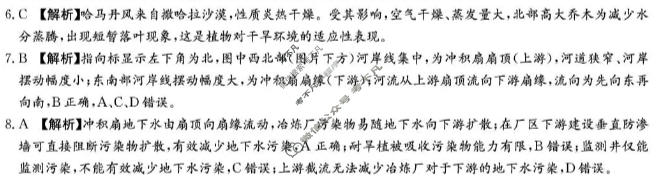 6. C 【解析】哈马丹风来自撒哈拉沙漠，性质炎热干燥。受其影响，空气干燥、蒸发量大，北部高大乔木为减少水
分蒸腾，出现短暂落叶现象，这是植物对干旱环境的适应性表现。
7. B 【解析】指向标显示左下角为北，图中西北部(图片下方)河岸线集中，为冲积扇扇顶(上游)，河道狭窄、河岸
摆动幅度小；东南部河岸线摆动幅度大，为冲积扇扇缘(下游)，河流从上游扇顶流向下游扇缘，流向为先向东再
向南，B正确，A、C、D错误。
8. A 【解析】冲积扇地下水由扇顶向扇缘流动，冶炼厂污染物易随地下水向下游扩散；在厂区下游建设垂直防渗
墙可直接阻断污染物扩散，有效减少地下水污染，A正确；耐旱植被吸收污染物能力有限，B错误；监测井仅能
监测污染，不能有效减少地下水污染，C错误；上游截流无法减少冶炼厂对于下游的地下水污染，D错误。